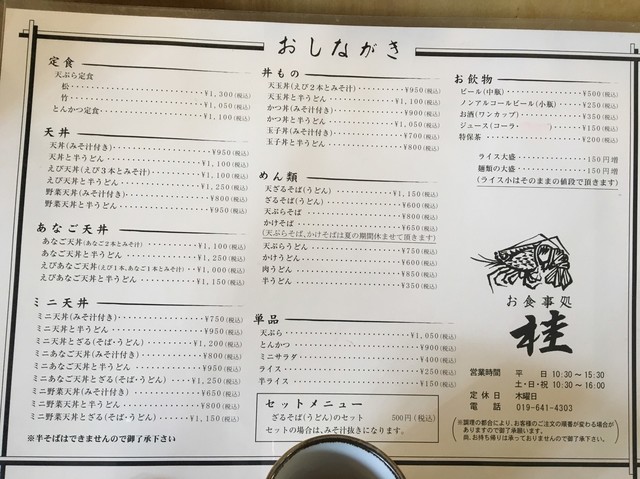 おしながき
定食
天ぷら定食
松 ¥1,300(税込)
竹 ¥1,050(税込)
とんかつ定食 ¥1,100(税込)
天丼
天丼(みそ汁付き) ¥950(税込)
天丼と半うどん ¥1,100(税込)
えび天丼(えび3本とみそ汁) ¥1,100(税込)
えび天丼と半うどん ¥1,250(税込)
野菜天丼(みそ汁付き) ¥800(税込)
野菜天丼と半うどん ¥950(税込)
あなご天丼
あなご天丼(あなご2本とみそ汁) ¥1,100(税込)
あなご天丼と半うどん ¥1,250(税込)
えびあなご天丼(えび1本、あなご1本とみそ汁) ¥1,000(税込)
えびあなご天丼と半うどん ¥1,150(税込)
ミニ天丼
ミニ天丼(みそ汁付き) ¥750(税込)
ミニ天丼と半うどん ¥950(税込)
ミニ天丼とざる(そば・うどん) ¥1,200(税込)
ミニあなご天丼(みそ汁付き) ¥800(税込)
ミニあなご天丼と半うどん ¥950(税込)
ミニあなご天丼とざる(そば・うどん) ¥1,250(税込)
ミニ野菜天丼(みそ汁付き) ¥650(税込)
ミニ野菜天丼と半うどん ¥800(税込)
ミニ野菜天丼とざる(そば・うどん) ¥1,150(税込)
※半そばはできませんので御了承下さい
丼もの
天玉丼(えび2本とみそ汁) ¥950(税込)
天玉丼と半うどん ¥1,100(税込)
かつ丼(みそ汁付き) ¥900(税込)
かつ丼と半うどん ¥1,050(税込)
玉子丼(みそ汁付き) ¥700(税込)
玉子丼と半うどん ¥800(税込)
めん類
天ざるそば(うどん) ¥1,150(税込)
ざるそば(うどん) ¥600(税込)
天ぷらそば ¥800(税込)
かけそば ¥650(税込)
(天ぷらそば、かけそばは夏の期間休ませて頂きます)
天ぷらうどん ¥750(税込)
かけうどん ¥600(税込)
肉うどん ¥850(税込)
半うどん ¥350(税込)
単品
天ぷら ¥1,050(税込)
とんかつ ¥900(税込)
ミニサラダ ¥400(税込)
ライス ¥250(税込)
半ライス ¥150(税込)
セットメニュー
ざるそば(うどん)のセット 500円(税込)
セットの場合は、みそ汁抜きになります。
お飲物
ビール(中瓶) ¥500(税込)
ノンアルコールビール(小瓶) ¥250(税込)
お酒(ワンカップ) ¥350(税込)
ジュース(コーラ ¥150(税込)
特保茶 ¥200(税込)
ライス大盛 150円増
麺類の大盛 150円増
(ライス小はそのままの値段で頂きます)
お食事処
桂
営業時間 平 日 10:30〜15:30
土・日・祝 10:30〜16:00
定休日 木曜日
電 話 019-641-4303
※調理の都合により、お客様のご注文の順番が変わる場合が
ありますので御了承願います。
尚、お持ち帰りは承っておりませんので御了承下さい。